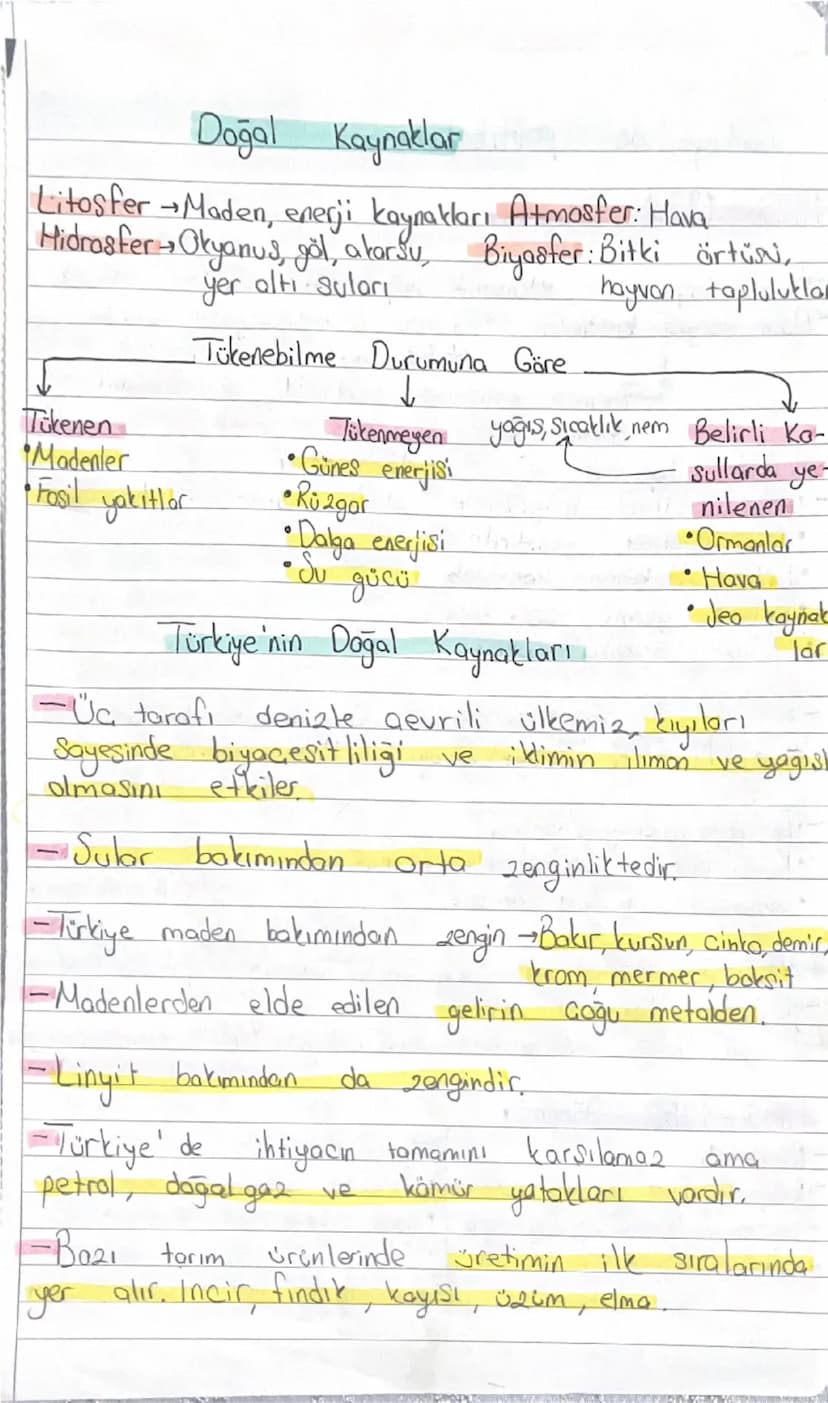 Doğal Kaynaklar
Litosfer → Maden, enerji kaynakları Atmosfer: Hava
Hidrosfer → Okyanus, göl, akarsu, Biyosfer: Bitki örtüsü,
yer altı suları hayvan toplulukla
Tükenebilme Durumuna Göre
Tükenen
• Madenler
• Fosil yakıtlar
Tükenmeyen
• Güneş enerjisi
• Rüzgar
• Dalga enerjisi
• Su gücü
yağış, sıcaklık, nem
Belirli Ko-
şullarda ye-
nilenen
• Ormanlar
• Hava
• Jeo kaynak
lar
Türkiye'nin Doğal Kaynakları
- Üç tarafı denizle çevrili ülkemiz, kıyıları
sayesinde biyoçeşitliliği ve iklimin ılıman ve yağışl
olmasını etkiler.
- Sular bakımından orta zenginliktedir.
- Türkiye maden bakımından zengin → Bakır, kurşun, çinko, demir,
krom, mermer, boksit
- Madenlerden elde edilen gelirin çoğu metalden.
- Linyit bakımından da zengindir.
- Türkiye'de ihtiyacın tamamını karşılamaz ama
petrol, doğalgaz ve kömür yatakları vardır.
- Bazı tarım ürünlerinde üretimin ilk sıralarında
yer alır. İncir, fındık, kayısı, üzüm, elma.